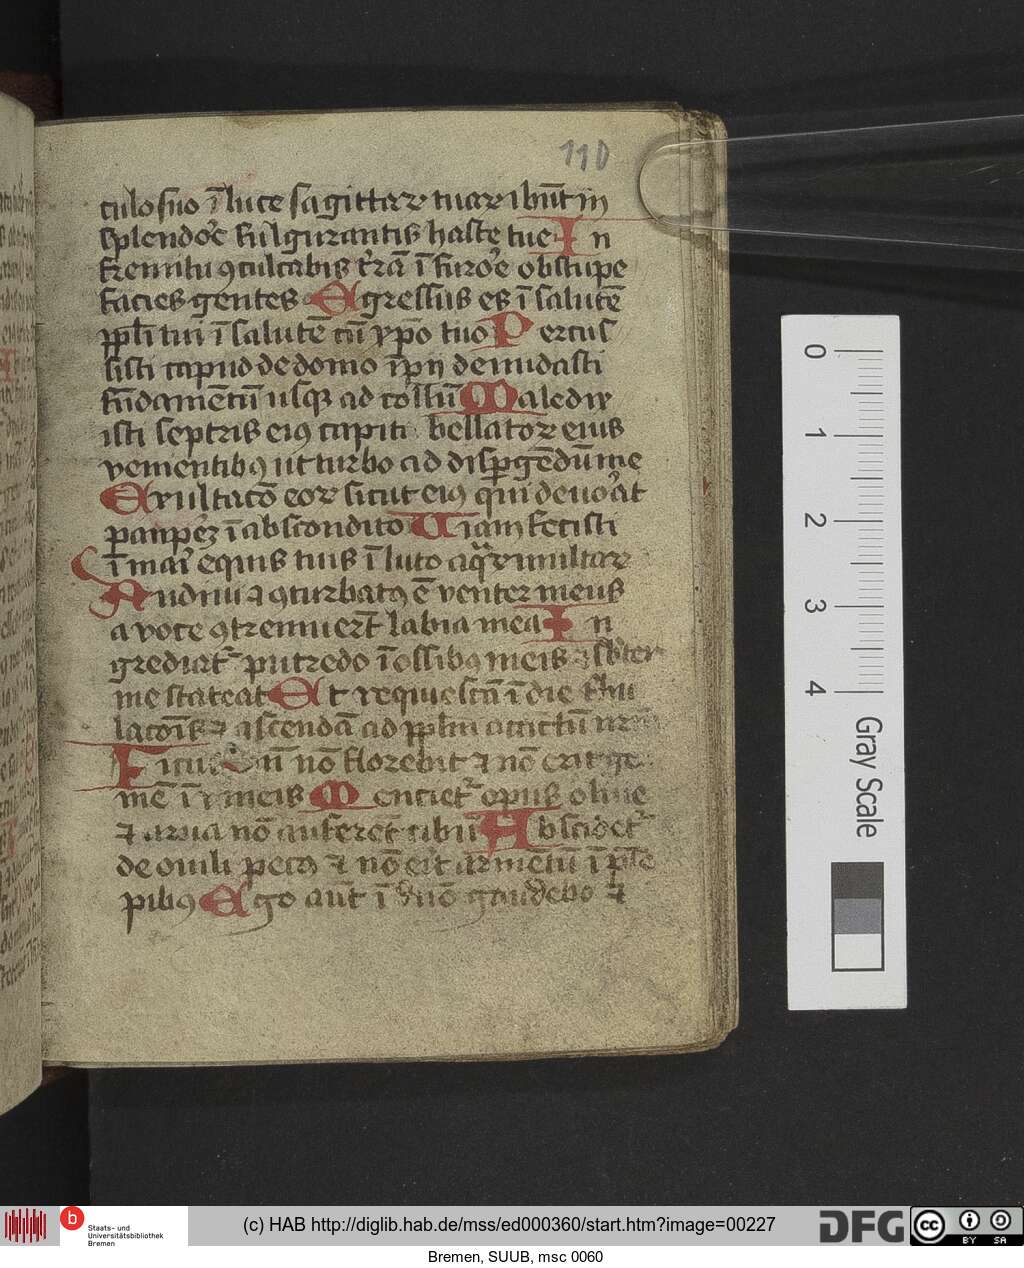 110
culo suo ī luce sagittar tuar ibūt in
splendoꝛe fulgurantis haste tue In
fremitu ꝯculcabis t̄rā ī furoꝛe obstupe
facies gentes Egressus es ī salutē
ppl̄i tui ī salutē cū xp̄o tuo Percus
sisti capud de domo īpij denudasti
fūdamētū usqꝫ ad collū Maledix
isti septris eiꝯ capiti bellator eius
vementibꝯ ut turbo ad disꝑgēdū me
Exultacō eor sicut eiꝯ qui deuoꝛat
pauꝑeꝫ ī abscondito Uiam fecisti
ī mari equis tuis ī luto aqr multar
Audiui ⁊ ꝯturbatꝯ ē venter meus
a voce ꝯtremuert̄ labia mea In
grediat᷑ putredo ī ossibꝯ meis ⁊ subter
me scateat Et requiescā ī die tribu
lacōis ⁊ ascendā ad ppl̄m accictū nrm
Ficus n̄ nō florebit ⁊ nō erit ger
mē ī meis Menciet᷑ opus oliue
⁊ arua nō auferēt cibū Abscidet᷑
de ouili pecꝯ ⁊ nō erit armētū ī p̄se
pibꝯ Ego aut̄ ī dn̄o gaudebo ⁊
0
1
2
3
4
Gray Scale
b
Staats- und
Universitätsbibliothek
Bremen
(c) HAB http://diglib.hab.de/mss/ed000360/start.htm?image=00227
DFG
cc
BY SA
Bremen, SUUB, msc 0060